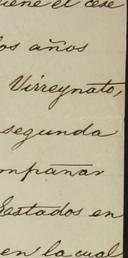 iene el cese
los años
Virreynato,
segunda
mpañar
Gastados en
en la cual